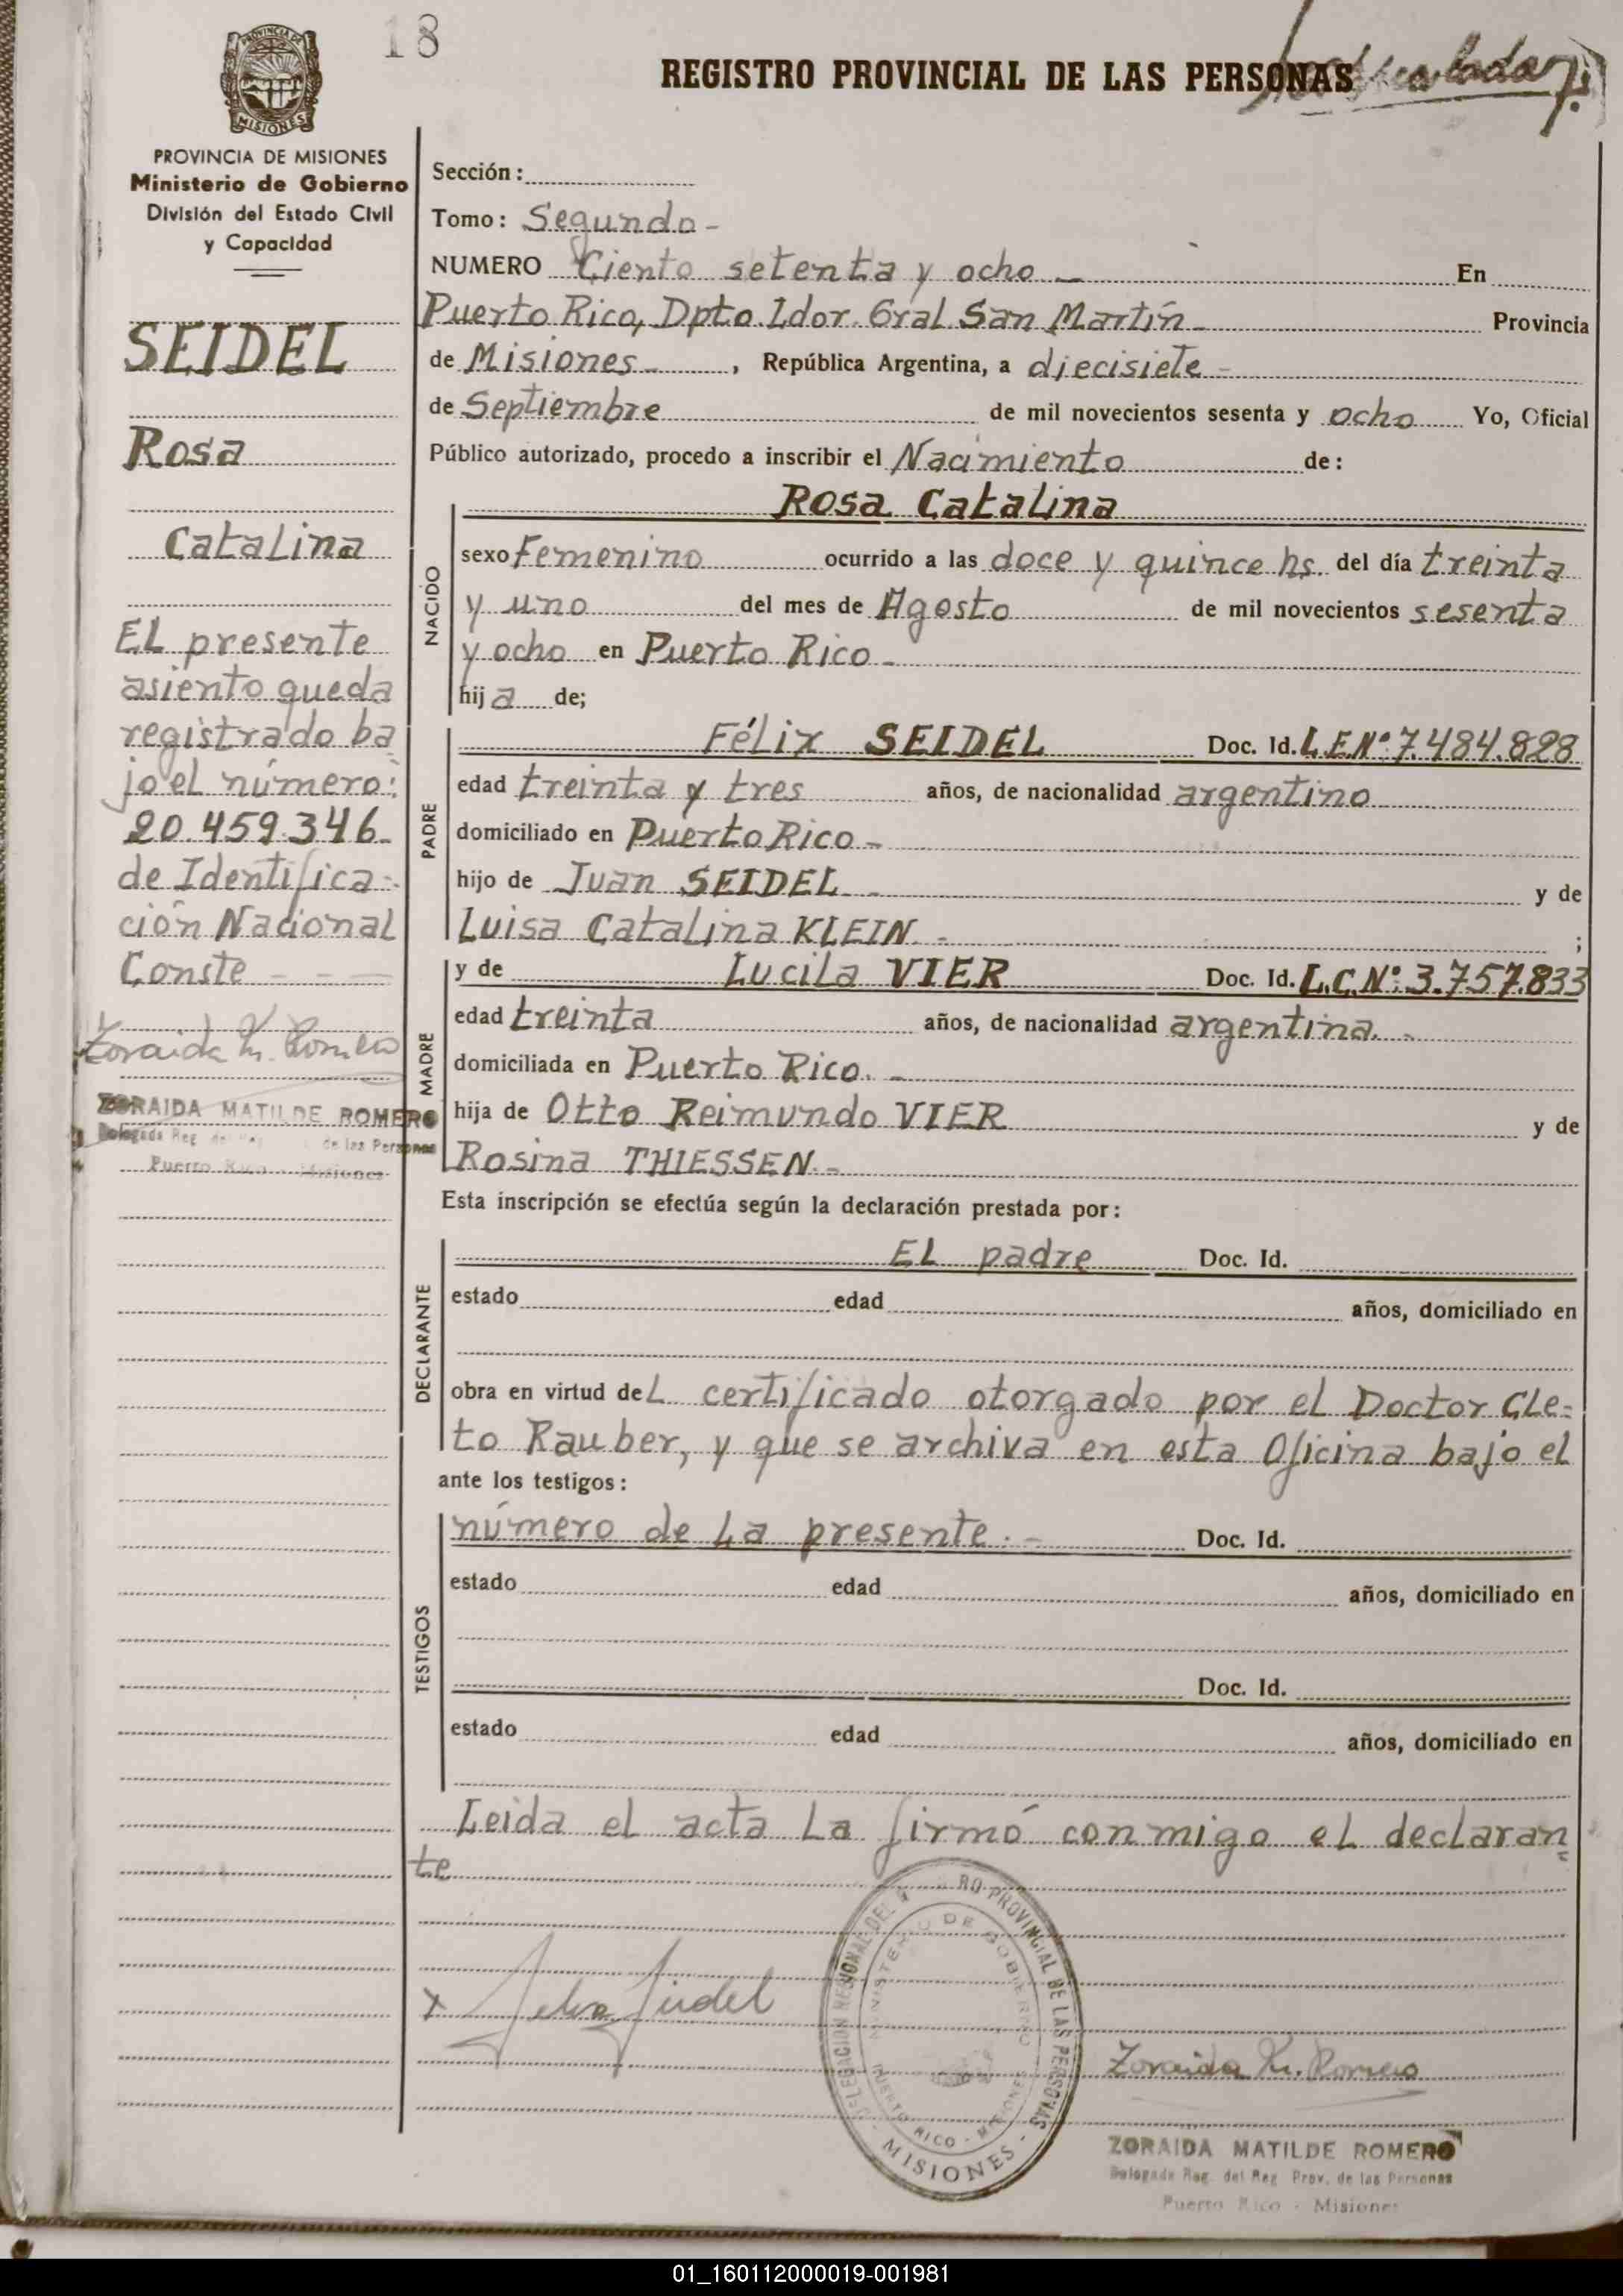 18
REGISTRO PROVINCIAL DE LAS PERSONAS
PROVINCIA DE MISIONES
MISIONES
PROVINCIA DE MISIONES
Ministerio de Gobierno
División del Estado Civil
y Capacidad
SEIDEL
Rosa
Catalina
EL presente
asiento queda
registrado ba
jo el número:
20.459.346
de Identifica-
ción Nacional
Conste - - =
Zoraida M. Romero
ZORAIDA MATILDE ROMERO
Delegada Reg. de las Personas
Puerto Rico - Misiones
Sección:
Tomo: Segundo -
NUMERO Ciento setenta y ocho - En
Puerto Rico, Dpto Ldor. Gral San Martín - Provincia
de Misiones - , República Argentina, a diecisiete -
de Septiembre de mil novecientos sesenta y ocho Yo, Oficial
Público autorizado, procedo a inscribir el Nacimiento de:
NACIDO
Rosa Catalina
sexo Femenino ocurrido a las doce y quince hs. del día treinta
y uno del mes de Agosto de mil novecientos sesenta
y ocho en Puerto Rico -
hija de;
PADRE
Félix SEIDEL Doc. Id. L.E.Nº 7.484.828
edad treinta y tres años, de nacionalidad argentino
domiciliado en Puerto Rico -
hijo de Juan SEIDEL - y de
Luisa Catalina KLEIN. - ;
MADRE
y de Lucila VIER Doc. Id. L.C.Nº: 3.757.833
edad treinta años, de nacionalidad argentina. -
domiciliada en Puerto Rico. -
hija de Otto Reimundo VIER y de
Rosina THIESSEN. -
Esta inscripción se efectúa según la declaración prestada por:
DECLARANTE
EL padre Doc. Id.
estado edad años, domiciliado en
obra en virtud deL certificado otorgado por el Doctor Cle=
to Rauber, y que se archiva en esta Oficina bajo el
ante los testigos:
TESTIGOS
número de La presente. - Doc. Id.
estado edad años, domiciliado en
Doc. Id.
estado edad años, domiciliado en
Leida el acta La firmó conmigo eL declaran=
te
x Seidel
DELEGACION REGIONAL DEL RO PROVINCIAL DE LAS PERSONAS
MINISTERIO DE GOBIERNO
PUERTO RICO - MISIONES
- MISIONES -
Zoraida M. Romero
ZORAIDA MATILDE ROMERO
Delegada Reg. del Reg. Prov. de las Personas
Puerto Rico - Misiones
01_160112000019-001981